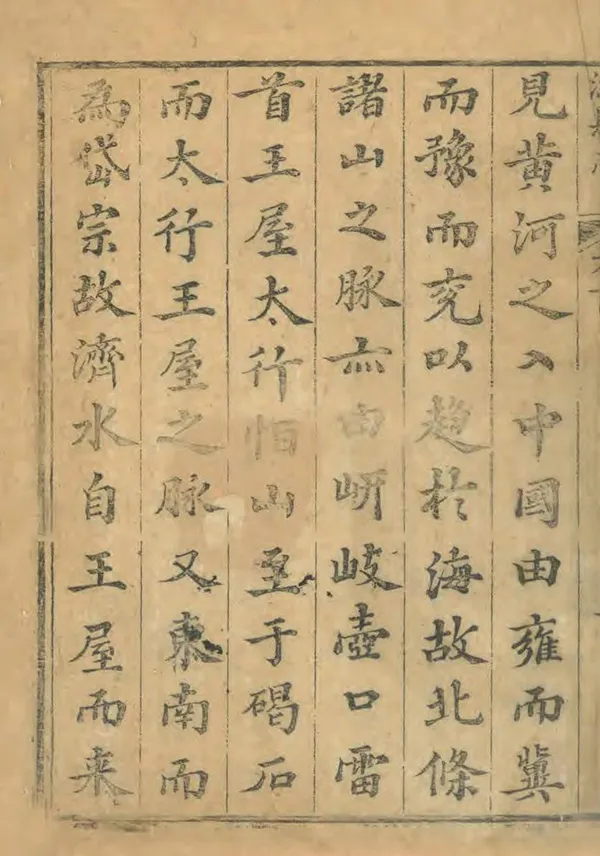 見黄河之入中國由雍而冀
而豫而兖以趋於海故北條
諸山之脉亦由岍岐壺口雷
首王屋太行恒山至于碣石
而太行王屋之脉又東南而
為岱宗故濟水自王屋而来